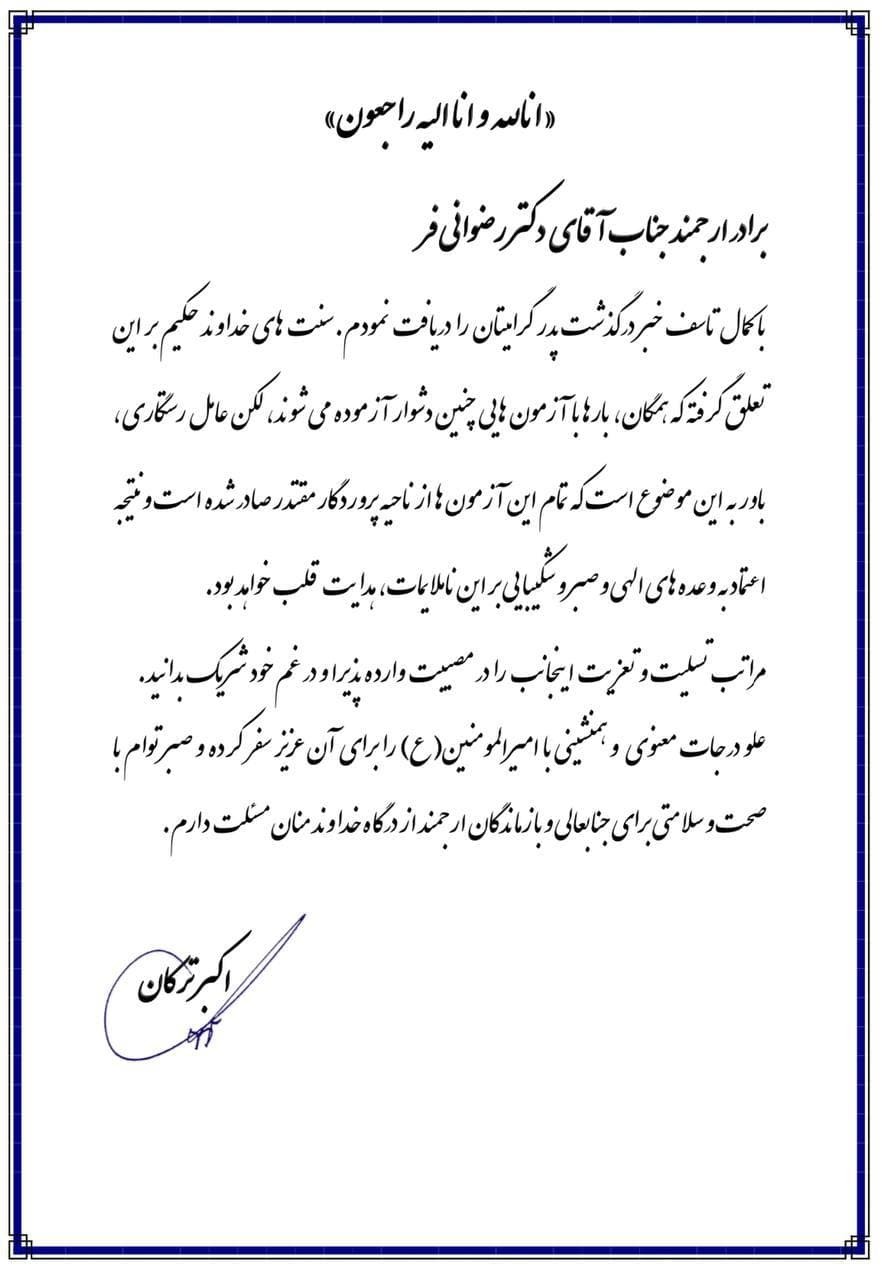 «انالله و انا الیه راجعون»
برادر ارجمند جناب آقای دکتر رضوانی فر
با کمال تاسف خبر درگذشت پدر گرامیتان را دریافت نمودم. سنت های خداوند حکیم بر این
تعلق گرفته که همگان، بارها با آزمون هایی چنین دشوار آزموده می شوند، لکن عامل رستگاری،
باور به این موضوع است که تمام این آزمون ها از ناحیه پروردگار مقتدر صادر شده است و نتیجه
اعتماد به وعده های الهی و صبر و شکیبایی بر این ناملایمات، هدایت قلب خواهد بود.
مراتب تسلیت و تعزیت اینجانب را در مصیبت وارده پذیرا و در غم خود شریک بدانید.
علو درجات معنوی و همنشینی با امیرالمومنین(ع) را برای آن عزیز سفر کرده و صبر توام با
صحت و سلامتی برای جنابعالی و بازماندگان ارجمند از درگاه خداوند منان مسئلت دارم.
اکبر ترکان